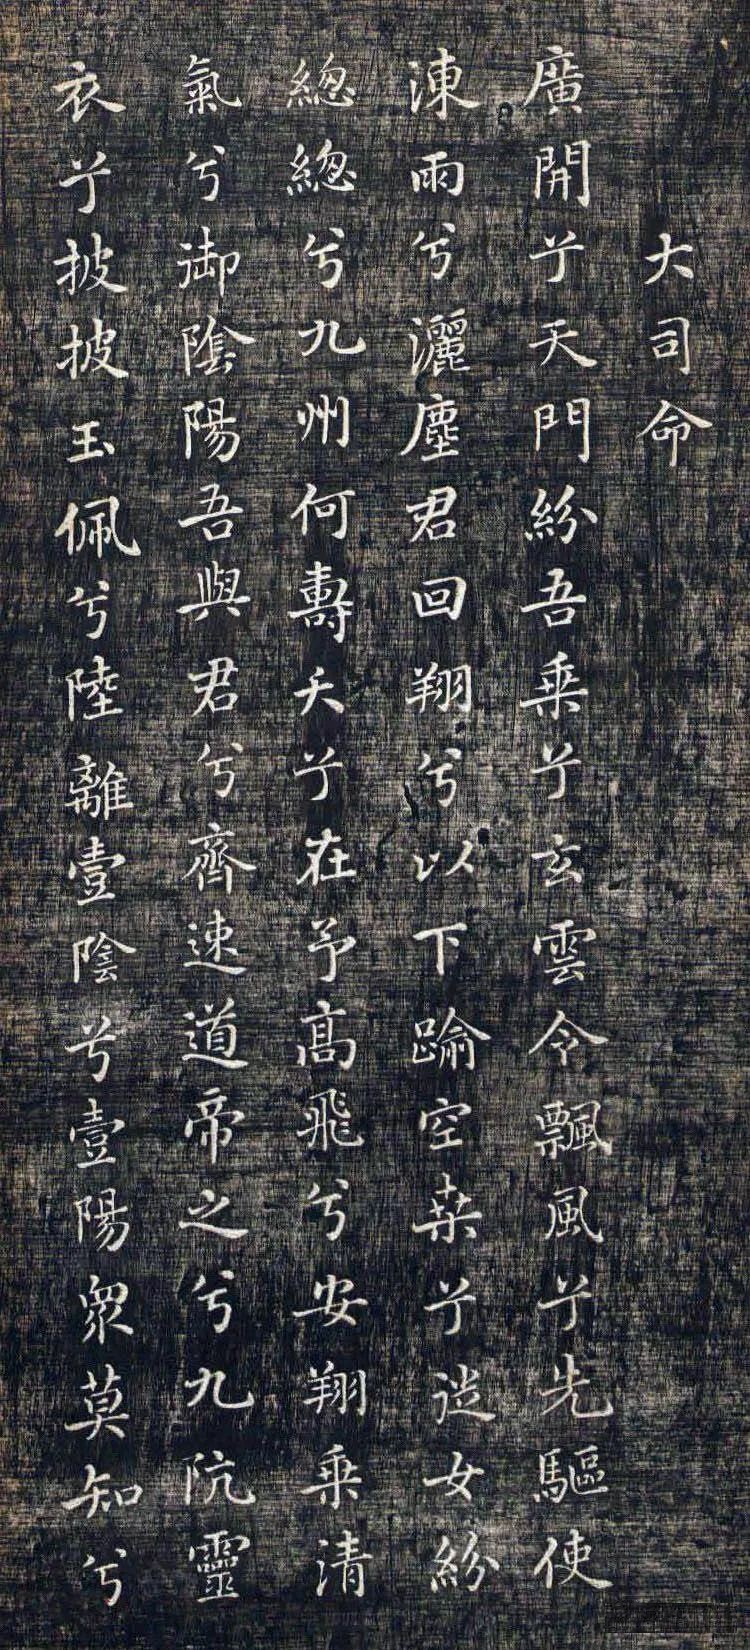 大司命
廣開兮天門紛吾乗兮玄雲令飄風兮先驅使
涷雨兮灑塵君回翔兮以下踰空桒兮従女紛
緫緫兮九州何壽夭兮在予髙飛兮安翔乗清
氣兮御陰陽吾與君兮齊速道帝之兮九阬靈
衣兮披披玉佩兮陸離壹陰兮壹陽衆莫知兮